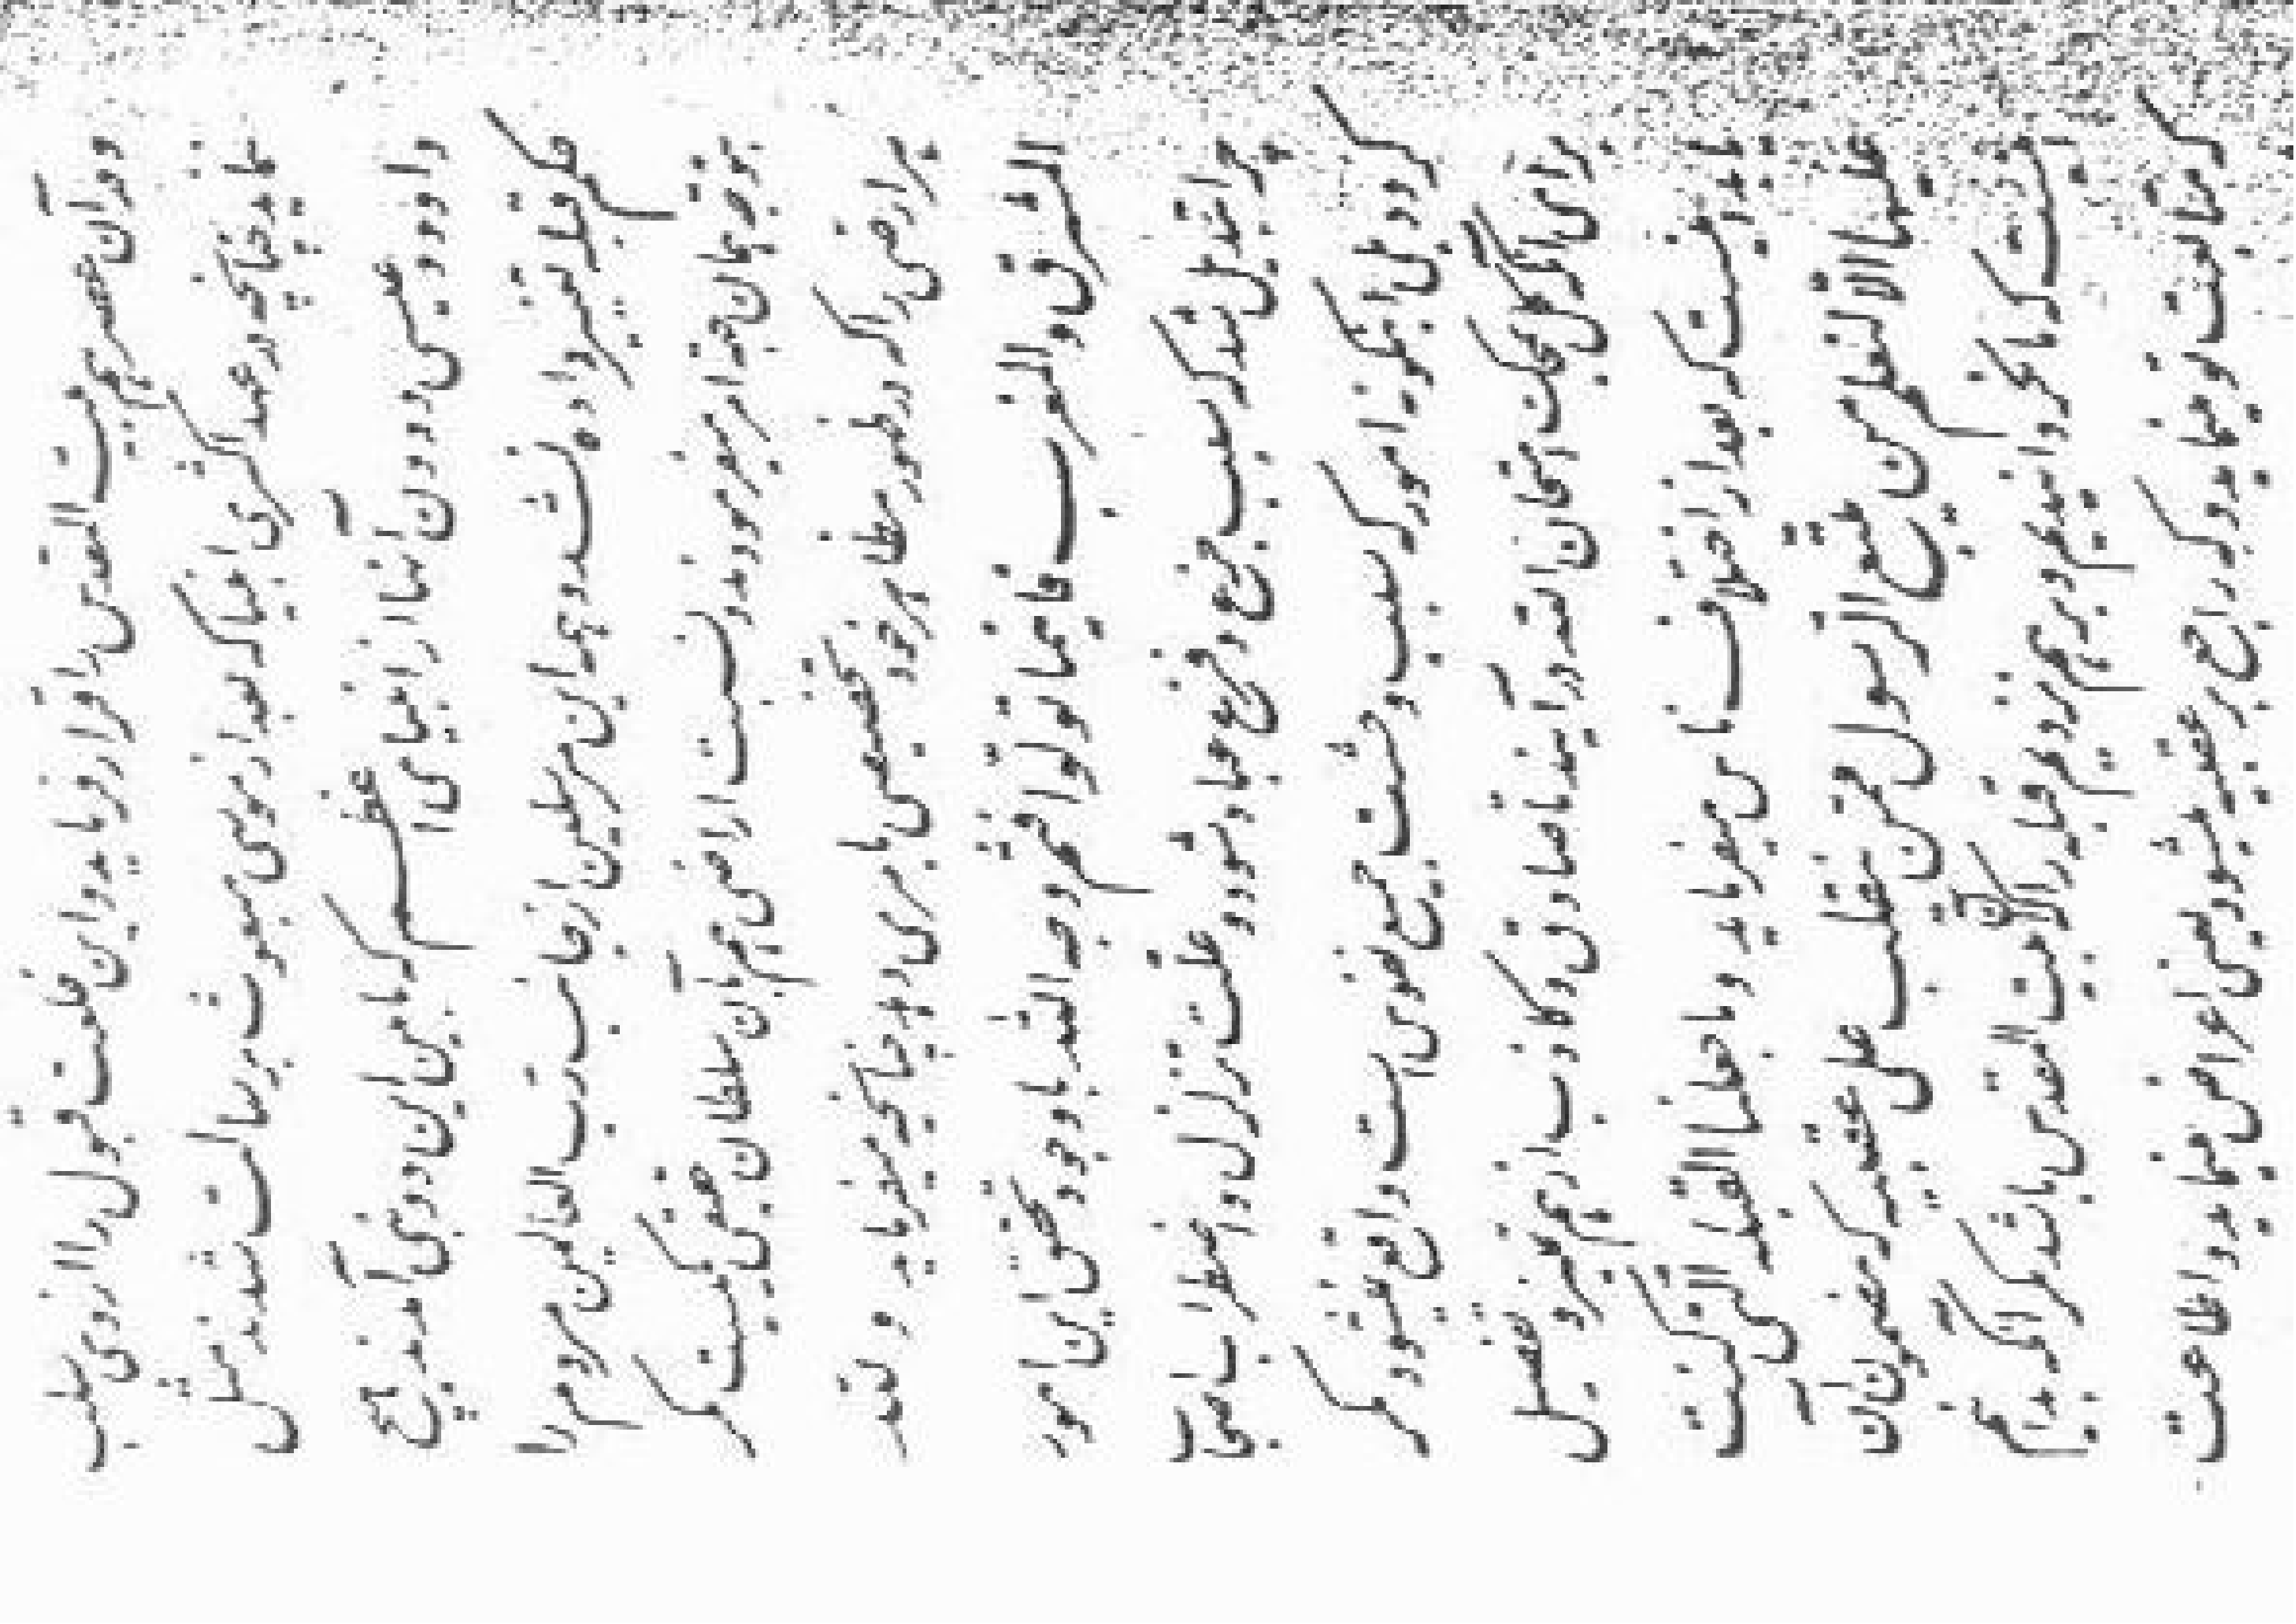 و در آن عصر هم بیت المقدس را قرار فرماید و این خلعت قبول را از وی سلب
نماید چنانچه در عهد اکثری انبیا که بعد از موسی مبعوث برسالت شدند مثل
داود و عیسی و دون آنها از انبیای اعظم که مابین این دو نبی آمدند هیچ
حکم قبله تغییر داده نشد و همه این مرسلین از جانب رب العالمین مردم را
بتوجه همان جهة امر میفرمودند و نسبت اراضی هم بآن سلطان حقیقی یکیست مگر
هر ارضی را که در ظهور مظاهر خود تخصیص بامری دهد چنانچه میفرماید و لله
المشرق و المغرب فاینما تولوا فثم وجه الله با وجود تحقق این امور
چرا تبدیل شد که سبب جزع و فزع عباد شود و علت تزلزل و اضطراب اصحاب
گردد بلی اینگونه امور که سبب وحشت جمیع نفوس است واقع نمیشود مگر
برای آنکه کل بمحک امتحان الله درآیند تا صادق و کاذب از هم تمیز و تفصیل
یابد اینست که بعد از اختلاف ناس میفرماید و ما جعلنا القبلة التی کنت
علیها الا لنعلم من یتبع الرسول ممن ینقلب علی عقبیه که مضمون آن
اینست که ما نگردانیدیم و بر هم نزدیم قبله را که آن بیت المقدس باشد مگر آنکه بدانیم
که متابعت تو مینماید و که راجع بر عقبیه میشود یعنی اعراض مینماید و اطاعت